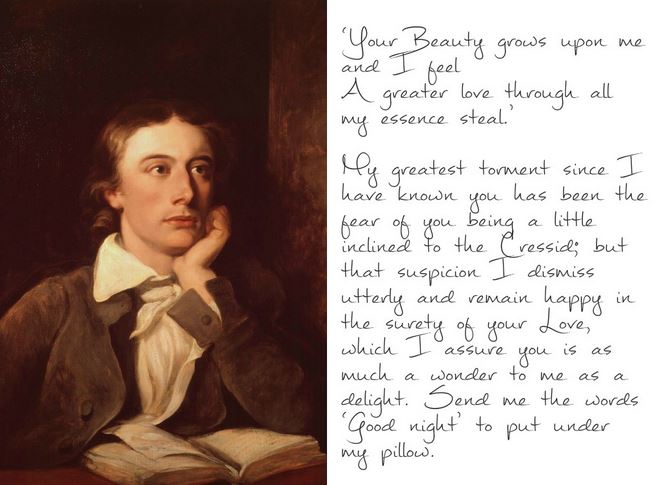 'Your Beauty grows upon me
and I feel
A greater love through all
my essence steal.'
My greatest torment since I
have known you has been the
fear of you being a little
inclined to the Cressid; but
that suspicion I dismiss
utterly and remain happy in
the surety of your Love,
which I assure you is as
much a wonder to me as a
delight. Send me the words
'Good night' to put under
my pillow.